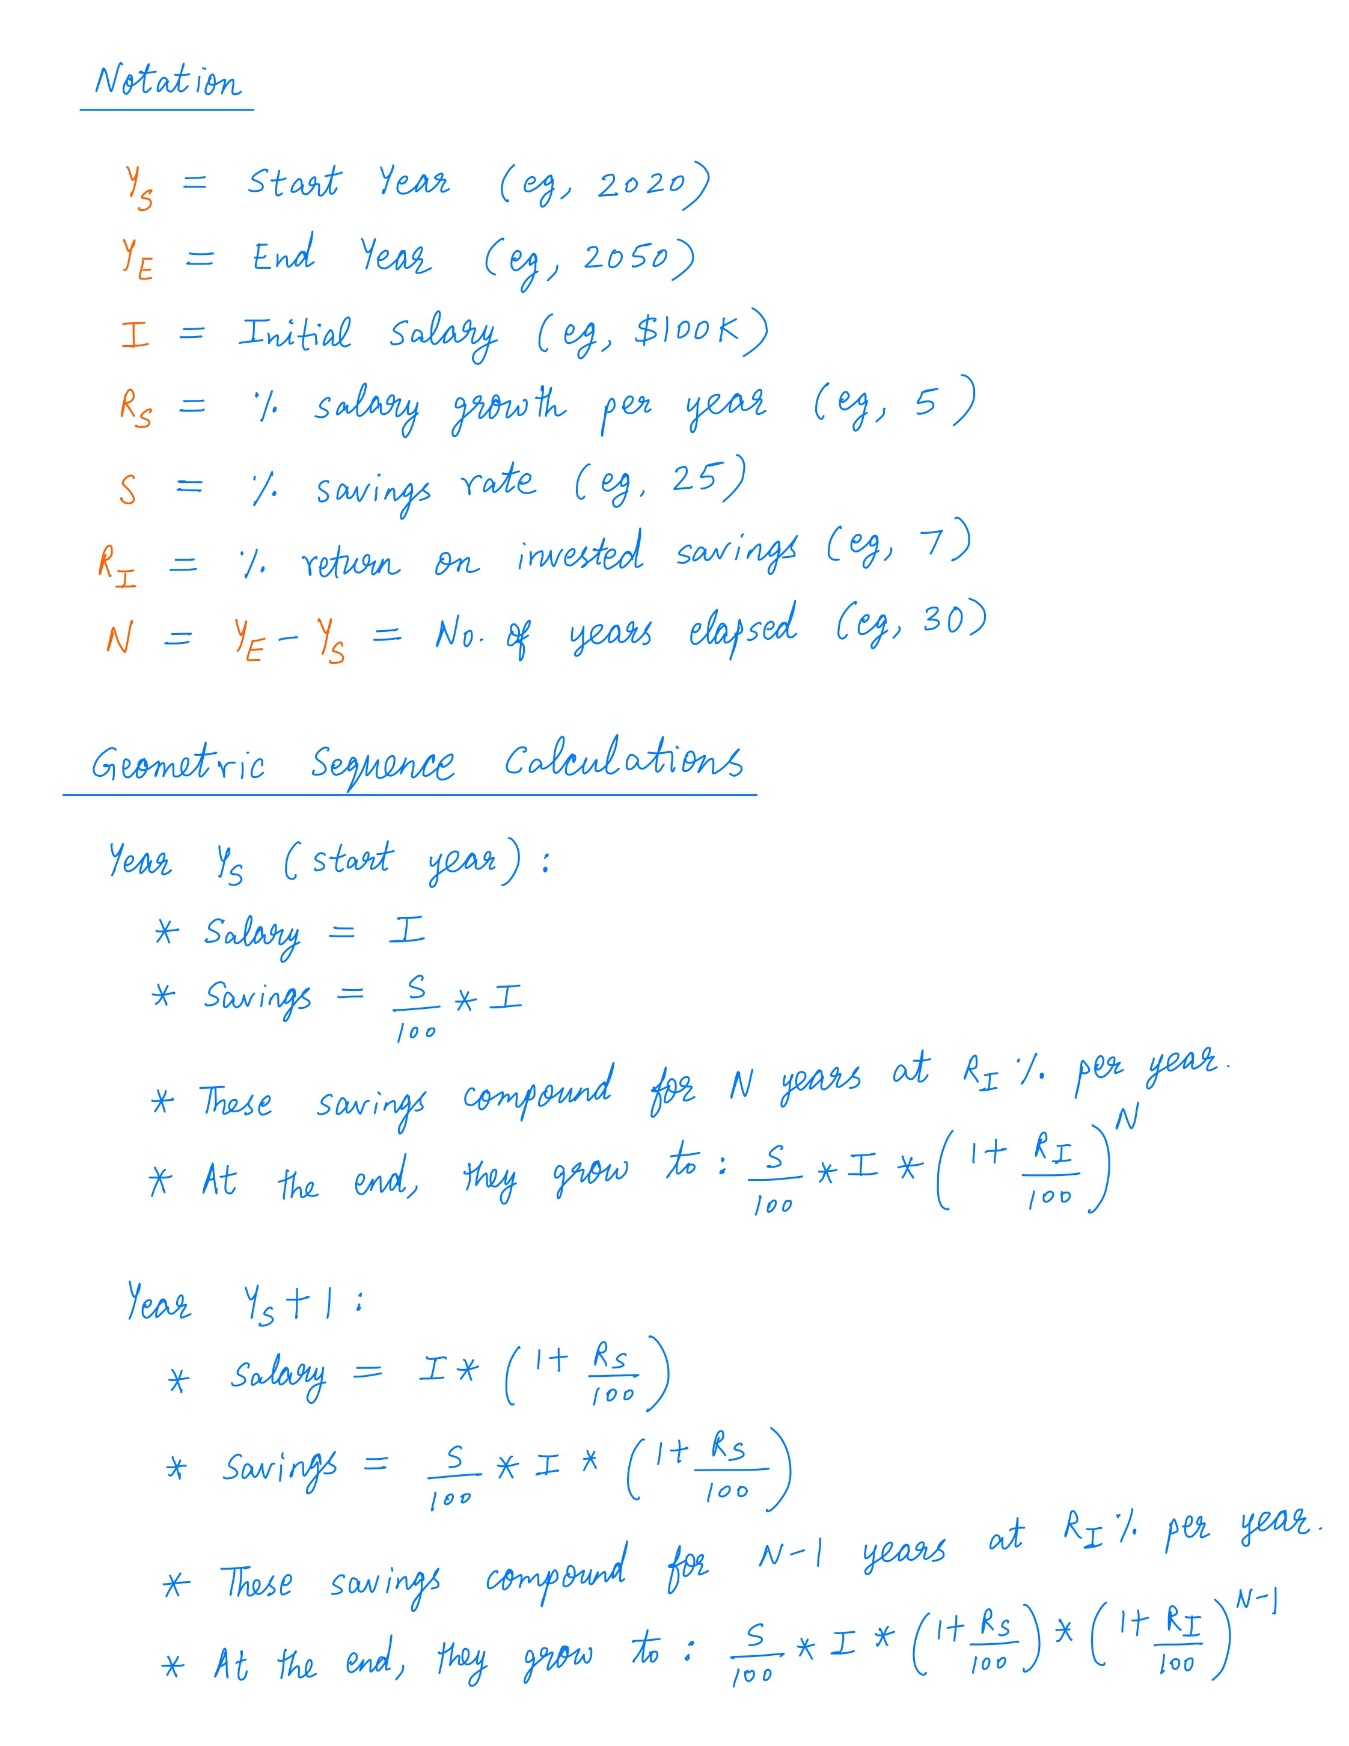 Notation
Y_S = Start Year (eg, 2020)
Y_E = End Year (eg, 2050)
I = Initial salary (eg, $100K)
R_S = % salary growth per year (eg, 5)
S = % savings rate (eg, 25)
R_I = % return on invested savings (eg, 7)
N = Y_E - Y_S = No. of years elapsed (eg, 30)
Geometric Sequence Calculations
Year Y_S (start year):
* Salary = I
* Savings = S/100 * I
* These savings compound for N years at R_I % per year.
* At the end, they grow to: S/100 * I * (1 + R_I/100)^N
Year Y_S + 1:
* Salary = I * (1 + R_S/100)
* Savings = S/100 * I * (1 + R_S/100)
* These savings compound for N-1 years at R_I % per year.
* At the end, they grow to: S/100 * I * (1 + R_S/100) * (1 + R_I/100)^N-1